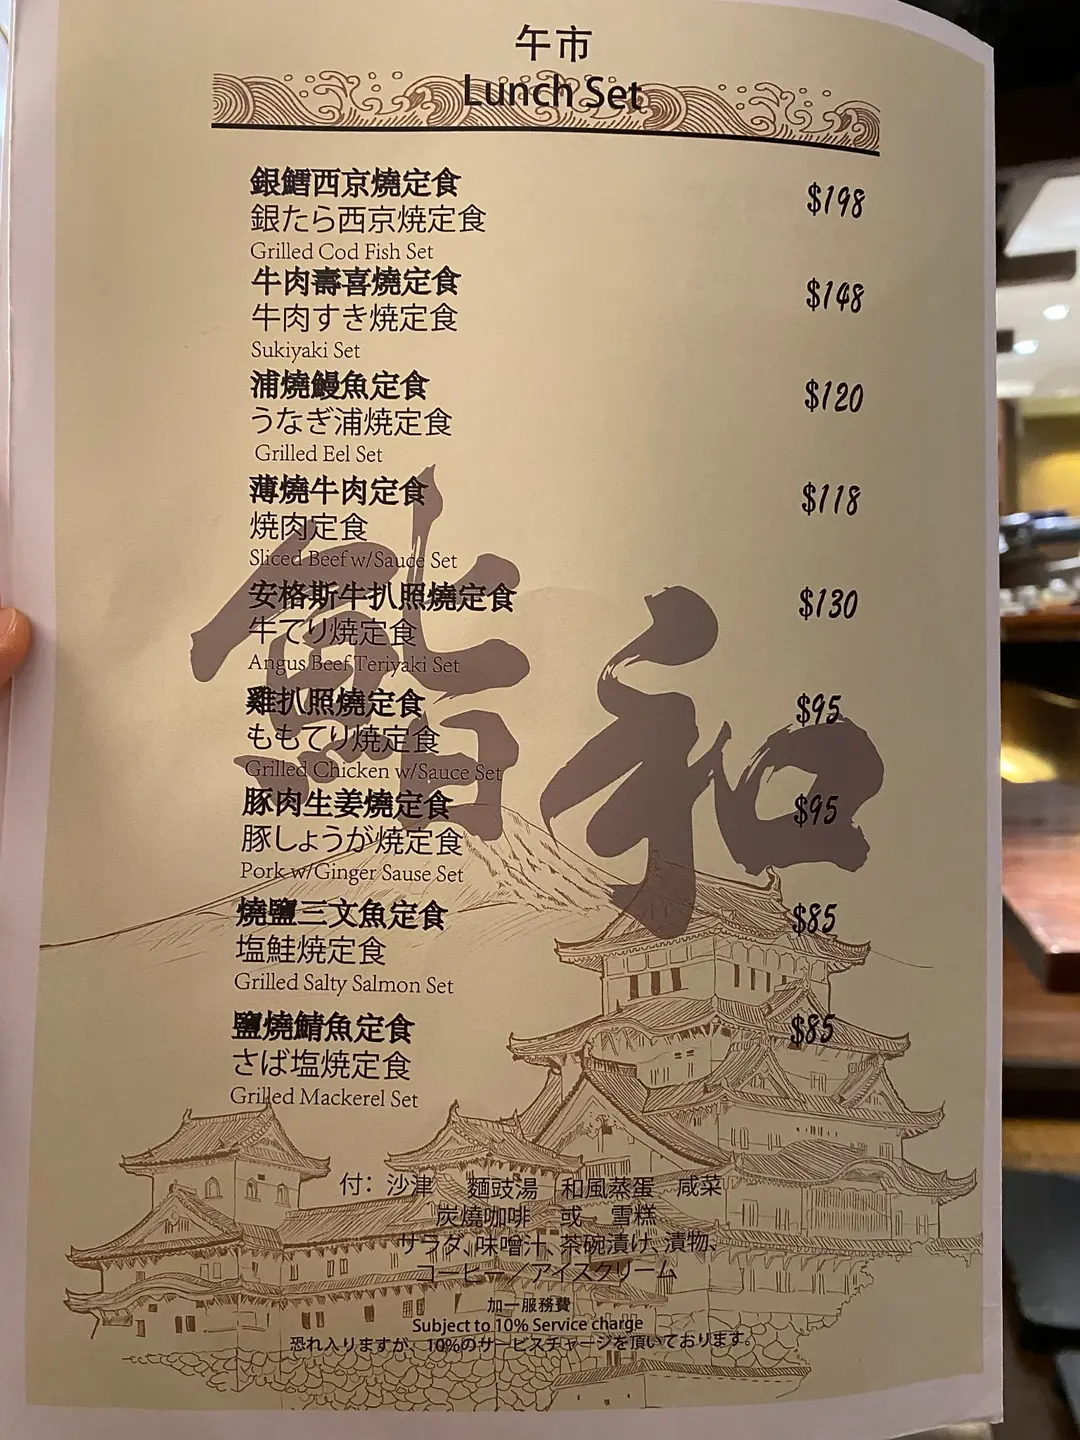 午市
Lunch Set
銀鱈西京燒定食
銀たら西京焼定食
Grilled Cod Fish Set
$198
牛肉壽喜燒定食
牛肉すき焼定食
Sukiyaki Set
$148
浦燒鰻魚定食
うなぎ浦焼定食
Grilled Eel Set
$120
薄燒牛肉定食
焼肉定食
Sliced Beef w/Sauce Set
$118
安格斯牛扒照燒定食
牛てり焼定食
Angus Beef Teriyaki Set
$130
雞扒照燒定食
ももてり焼定食
Grilled Chicken w/Sauce Set
$95
豚肉生姜燒定食
豚しょうが焼定食
Pork w/Ginger Sause Set
$95
燒鹽三文魚定食
塩鮭焼定食
Grilled Salty Salmon Set
$85
鹽燒鯖魚定食
さば塩焼定食
Grilled Mackerel Set
$85
鮨和
付：沙津 麵豉湯 和風蒸蛋 咸菜
炭燒咖啡 或 雪糕
サラダ、味噌汁、茶碗漬け、漬物、
コーヒー／アイスクリーム
加一服務費
Subject to 10% Service charge
恐れ入りますが、10%のサービスチャージを頂いております。